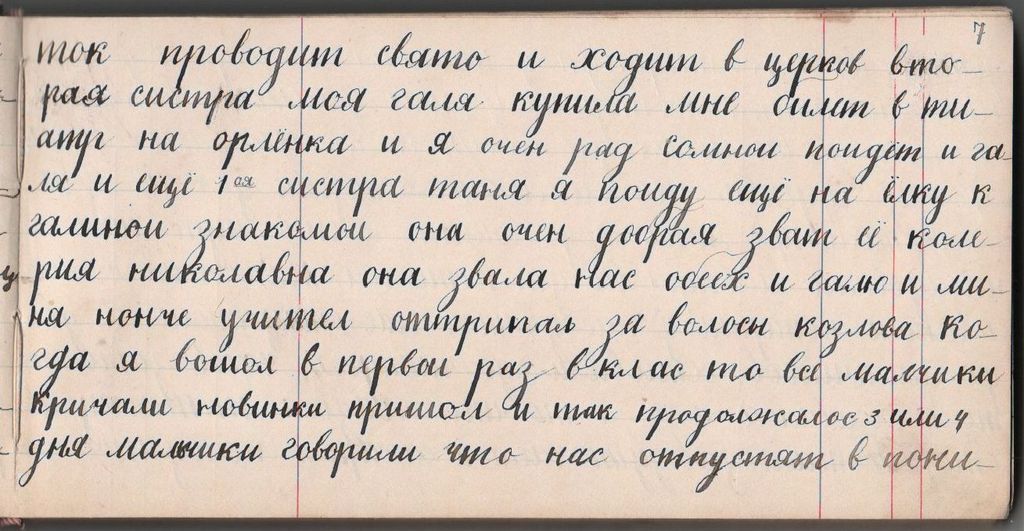 7
ток проводит свято и ходит в церков вто-
рая систра моя галя купила мне билет в ти-
атр на орлёнка и я очен рад сомнои поидет и га-
ля и ещё 1ая систра таня я поиду ещё на ёлку к
галинои знакомои она очен добрая зват её коле-
рия николавна она звала нас обеех и галю и ми-
ня нонче учител оттрипал за волосы козлова ко-
гда я вошол в первои раз в клас то все малчики
кричали новинки пришол и так продолжалос 3 или 4
дня малчики говорили что нас отпустят в пони-